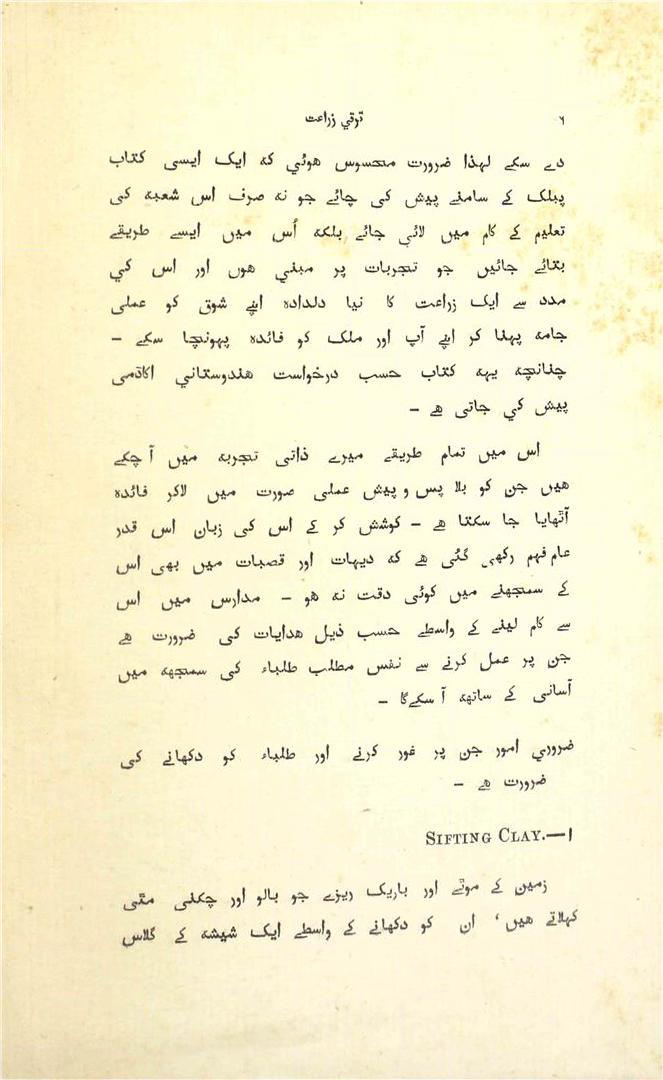 ۶ ترقي زراعت
دے سکے لہذا ضرورت محسوس ہوئي کہ ایک ایسی کتاب
پبلک کے سامنے پیش کی جائے جو نہ صرف اس شعبہ کی
تعلیم کے کام میں لائي جائے بلکہ اُس میں ایسے طریقے
بتائے جائیں جو تجربات پر مبني ہوں اور اس کي
مدد سے ایک زراعت کا نیا دلدادہ اپنے شوق کو عملی
جامہ پہنا کر اپنے آپ اور ملک کو فائدہ پہونچا سکے -
چنانچہ یہہ کتاب حسب درخواست ہندوستاني اکاڈمی
پیش کي جاتی ہے -
اس میں تمام طریقے میرے ذاتی تجربہ میں آ چکے
ہیں جن کو بلا پس و پیش عملی صورت میں لاکر فائدہ
اُٹھایا جا سکتا ہے - کوشش کر کے اس کی زبان اس قدر
عام فہم رکھی گئی ہے کہ دیہات اور قصبات میں بھی اس
کے سمجھنے میں کوئی دقت نہ ہو - مدارس میں اس
سے کام لینے کے واسطے حسب ذیل ہدایات کی ضرورت ہے
جن پر عمل کرنے سے نفس مطلب طلباء کی سمجھہ میں
آسانی کے ساتھہ آ سکےگا -
ضروري امور جن پر غور کرنے اور طلباء کو دکھانے کی
ضرورت ہے -
۱—SIFTING CLAY.
زمین کے موٹے اور باریک ریزے جو بالو اور چکنی مٹی
کہلاتے ہیں، ان کو دکھانے کے واسطے ایک شیشہ کے گلاس